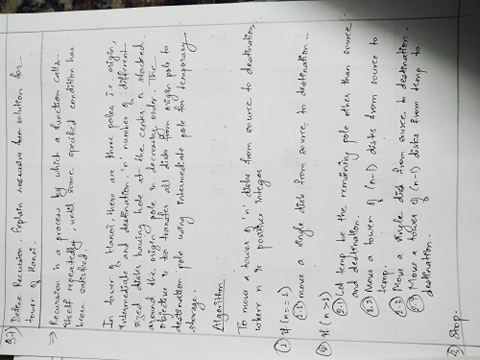 Q.7) Define Recursion. Explain recursive solution for
tower of Hanoi.
⇒ Recursion is a process by which a function calls
itself repeatedly, until some specified condition has
been satisfied.
In tower of Hanoi, there are three poles i.e. origin,
intermediate and destination. 'n' number of different
sized disks having hole at the center is stacked
around the origin pole in decreasing order. The
objective is to transfer all disks from origin pole to
destination pole using intermediate pole for temporary
storage.
Algorithm
To move a tower of 'n' disks from source to destination,
where n is positive integer
① if (n==1)
1.1) move a single disk from source to destination.
② if (n>1)
2.1) Let temp be the remaining pole other than source
and destination.
2.2) Move a tower of (n-1) disks from source to
temp.
2.3) Move a single disk from source to destination.
2.4) Move a tower of (n-1) disks from temp to
destination.
③ Stop.